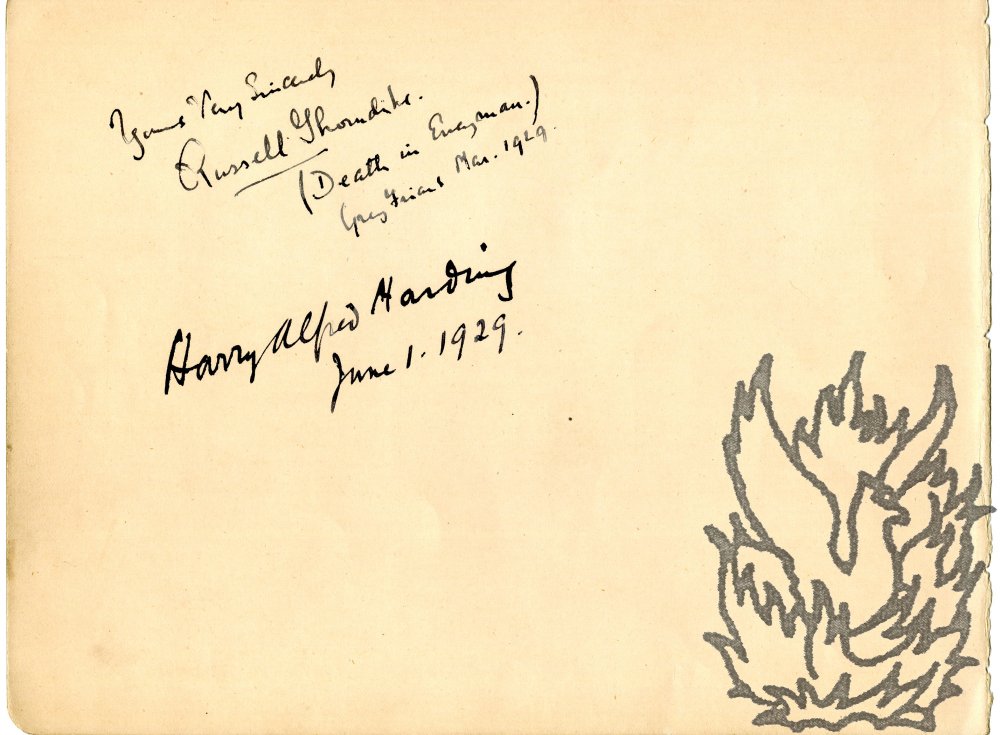 Yours Very Sincerely
Russell Thorndike.
(Death in Everyman.)
Grey Friars Mar. 1929.
Harry Alfred Harding
June 1. 1929.